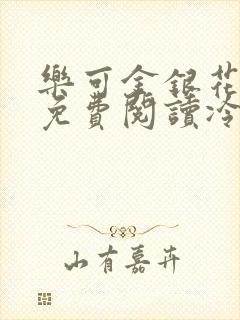 樂可金銀花
免費閱讀冷
山有嘉卉